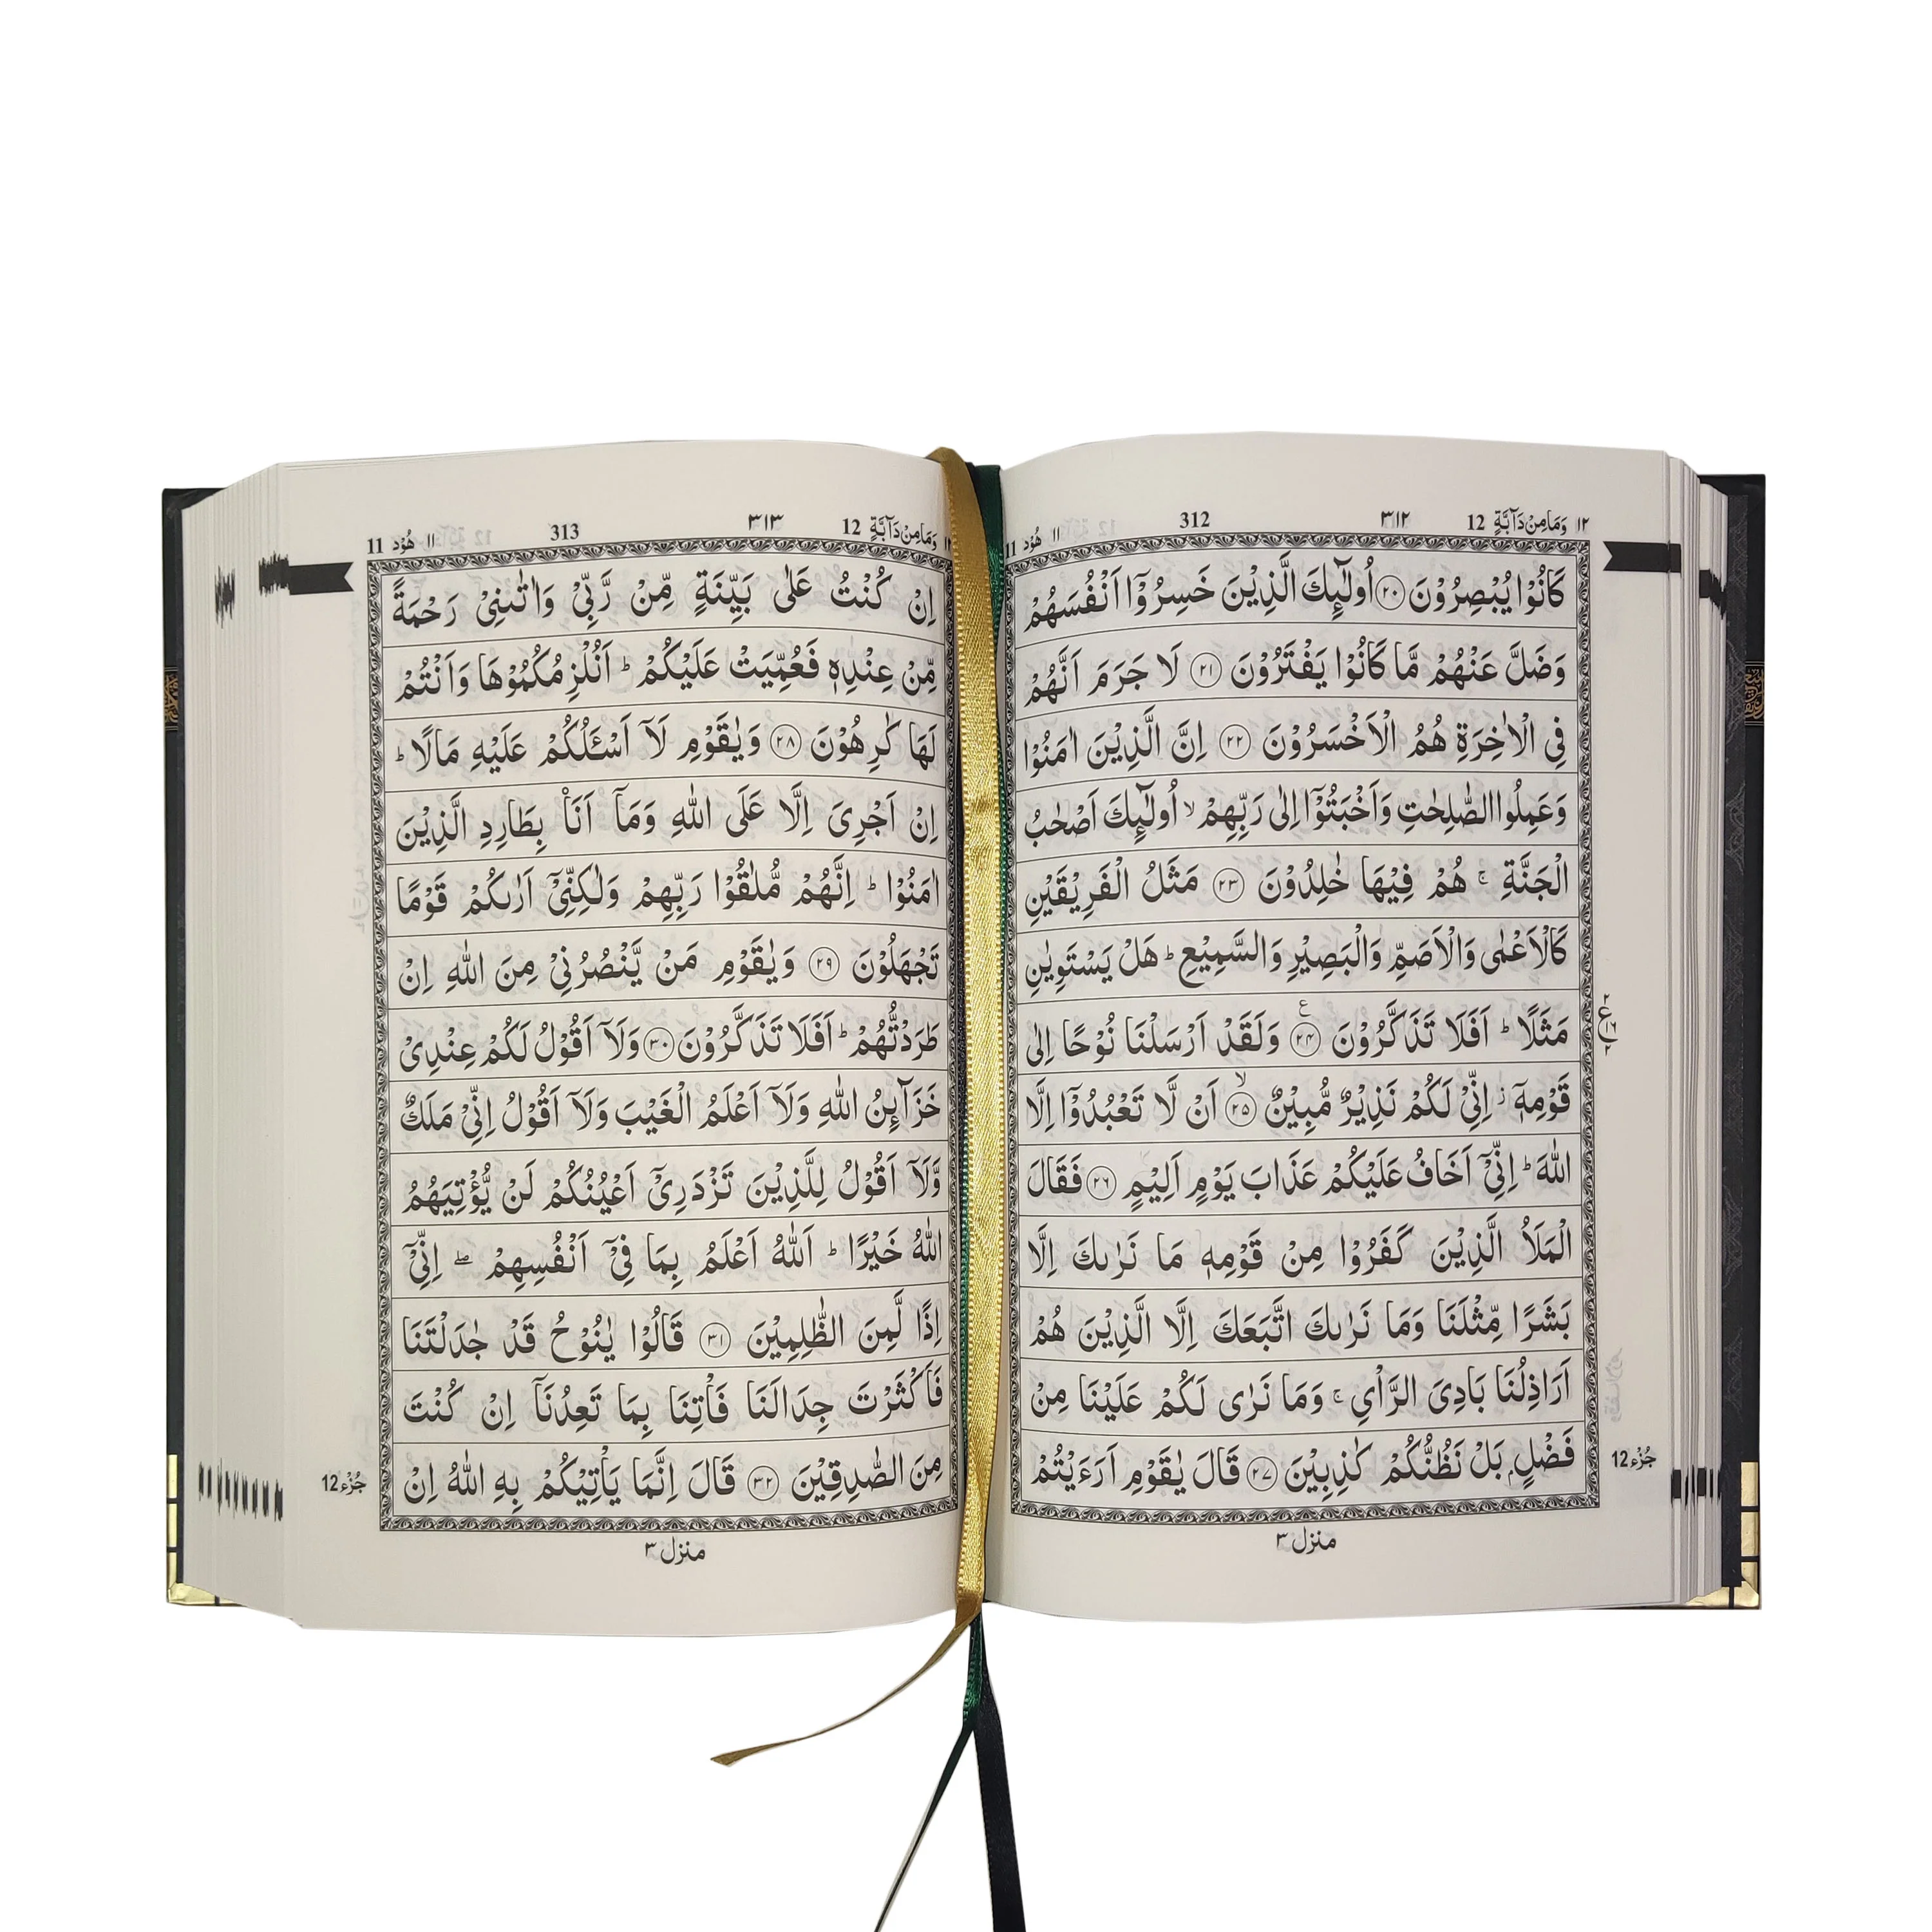 ١٢ وَمَا مِنْ دَآبَّةٍ 12 ٣١٢ 312 ١١ هُوْد 11
كَانُوْا يُبْصِرُوْنَ ﴿٢٠﴾ اُولٰٓئِكَ الَّذِيْنَ خَسِرُوْٓا اَنْفُسَهُمْ
وَضَلَّ عَنْهُمْ مَّا كَانُوْا يَفْتَرُوْنَ ﴿٢١﴾ لَا جَرَمَ اَنَّهُمْ
فِي الْاٰخِرَةِ هُمُ الْاَخْسَرُوْنَ ﴿٢٢﴾ اِنَّ الَّذِيْنَ اٰمَنُوْا
وَعَمِلُوا الصّٰلِحٰتِ وَاَخْبَتُوْٓا اِلٰى رَبِّهِمْ ۙ اُولٰٓئِكَ اَصْحٰبُ
الْجَنَّةِ ۚ هُمْ فِيْهَا خٰلِدُوْنَ ﴿٢٣﴾ مَثَلُ الْفَرِيْقَيْنِ
كَالْاَعْمٰى وَالْاَصَمِّ وَالْبَصِيْرِ وَالسَّمِيْعِ ؕ هَلْ يَسْتَوِيٰنِ
مَثَلًا ؕ اَفَلَا تَذَكَّرُوْنَ ﴿٢٤﴾ وَلَقَدْ اَرْسَلْنَا نُوْحًا اِلٰى
قَوْمِهٖٓ ۫ اِنِّيْ لَكُمْ نَذِيْرٌ مُّبِيْنٌ ﴿٢٥﴾ اَنْ لَّا تَعْبُدُوْٓا اِلَّا
اللّٰهَ ؕ اِنِّيْٓ اَخَافُ عَلَيْكُمْ عَذَابَ يَوْمٍ اَلِيْمٍ ﴿٢٦﴾ فَقَالَ
الْمَلَاُ الَّذِيْنَ كَفَرُوْا مِنْ قَوْمِهٖ مَا نَرٰىكَ اِلَّا
بَشَرًا مِّثْلَنَا وَمَا نَرٰىكَ اتَّبَعَكَ اِلَّا الَّذِيْنَ هُمْ
اَرَاذِلُنَا بَادِيَ الرَّاْيِ ۚ وَمَا نَرٰى لَكُمْ عَلَيْنَا مِنْ
فَضْلٍۭ بَلْ نَظُنُّكُمْ كٰذِبِيْنَ ﴿٢٧﴾ قَالَ يٰقَوْمِ اَرَءَيْتُمْ
جُزْء 12
منزل ٣
وَمَا مِنْ دَآبَّةٍ 12 ٣١٣ 313 ١١ هُوْد 11
اِنْ كُنْتُ عَلٰى بَيِّنَةٍ مِّنْ رَّبِّيْ وَاٰتٰىنِيْ رَحْمَةً
مِّنْ عِنْدِهٖ فَعُمِّيَتْ عَلَيْكُمْ ؕ اَنُلْزِمُكُمُوْهَا وَاَنْتُمْ
لَهَا كٰرِهُوْنَ ﴿٢٨﴾ وَيٰقَوْمِ لَآ اَسْـَٔلُكُمْ عَلَيْهِ مَالًا ؕ
اِنْ اَجْرِيَ اِلَّا عَلَى اللّٰهِ وَمَآ اَنَا۠ بِطَارِدِ الَّذِيْنَ
اٰمَنُوْا ؕ اِنَّهُمْ مُّلٰقُوْا رَبِّهِمْ وَلٰكِنِّيْٓ اَرٰىكُمْ قَوْمًا
تَجْهَلُوْنَ ﴿٢٩﴾ وَيٰقَوْمِ مَنْ يَّنْصُرُنِيْ مِنَ اللّٰهِ اِنْ
طَرَدْتُّهُمْ ؕ اَفَلَا تَذَكَّرُوْنَ ﴿٣٠﴾ وَلَآ اَقُوْلُ لَكُمْ عِنْدِيْ
خَزَآئِنُ اللّٰهِ وَلَآ اَعْلَمُ الْغَيْبَ وَلَآ اَقُوْلُ اِنِّيْ مَلَكٌ
وَّلَآ اَقُوْلُ لِلَّذِيْنَ تَزْدَرِيْٓ اَعْيُنُكُمْ لَنْ يُّؤْتِيَهُمُ
اللّٰهُ خَيْرًا ؕ اَللّٰهُ اَعْلَمُ بِمَا فِيْٓ اَنْفُسِهِمْ ۖ اِنِّيْٓ
اِذًا لَّمِنَ الظّٰلِمِيْنَ ﴿٣١﴾ قَالُوْا يٰنُوْحُ قَدْ جٰدَلْتَنَا
فَاَكْثَرْتَ جِدَالَنَا فَاْتِنَا بِمَا تَعِدُنَآ اِنْ كُنْتَ
مِنَ الصّٰدِقِيْنَ ﴿٣٢﴾ قَالَ اِنَّمَا يَاْتِيْكُمْ بِهِ اللّٰهُ اِنْ
جُزْء 12
منزل ٣